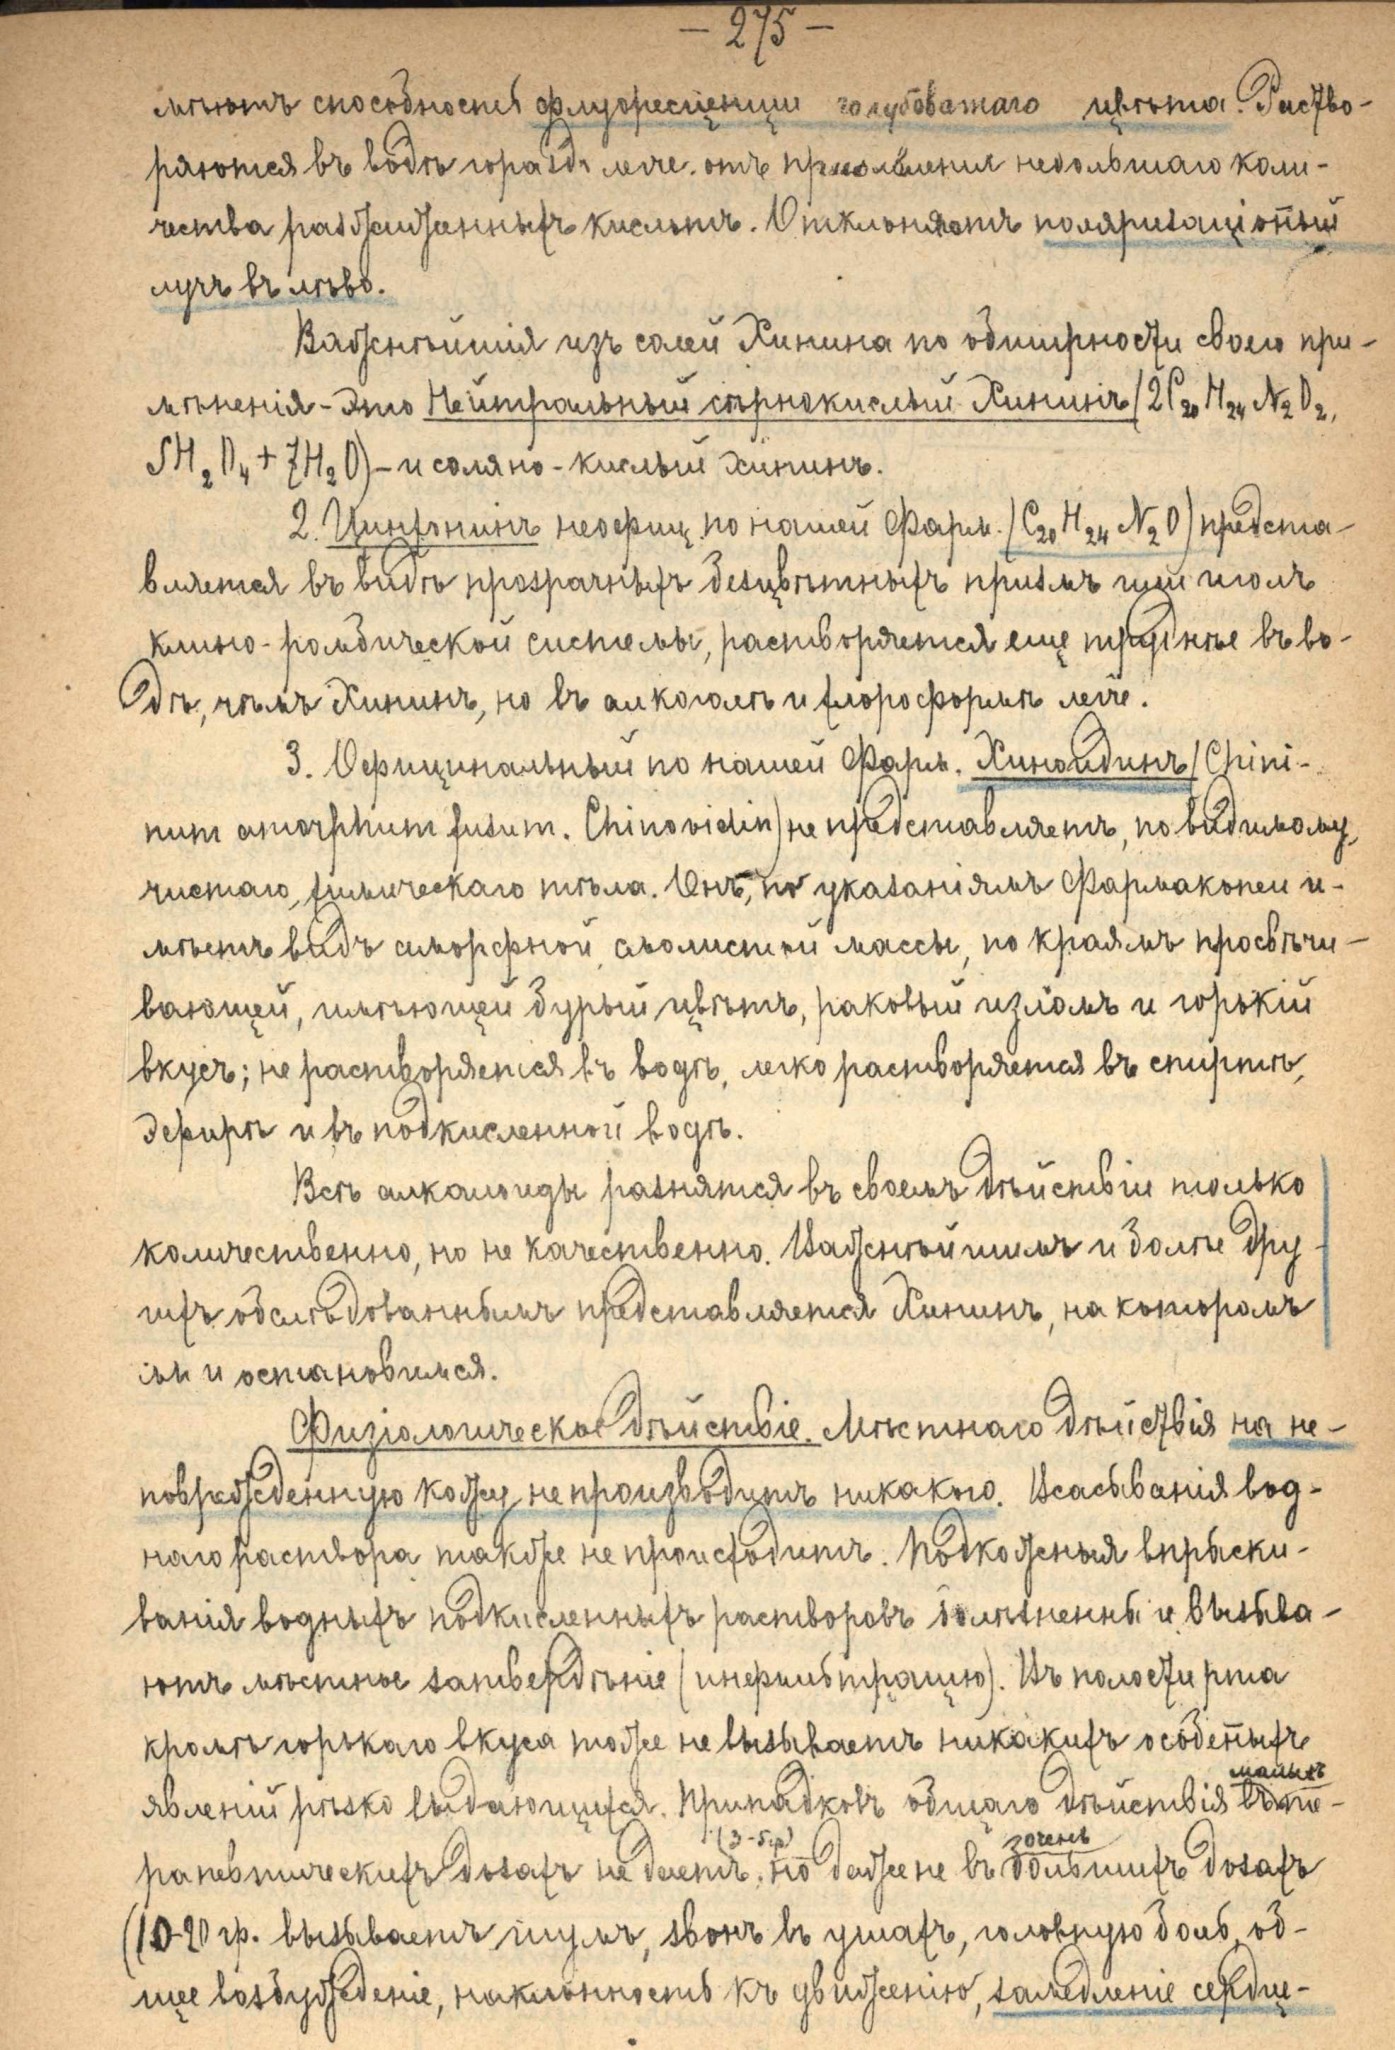 — 275 —
мѣютъ способность флуоресценции голубоватаго цвѣта. Раство-
ряются въ водѣ гораздо легче отъ небольшаго коли-
чества разжиженныхъ кислотъ. Отклоняютъ поляризаціонный
лучъ въ лѣво.
Важнѣйшія изъ солей Хинина по обширности своего при-
мѣненія - это Нейтральный сѣрнокислый Хининъ (2C20 H24 N2 O2,
SH2O4 + 7H2O) – и соляно-кислый хининъ.
2. Цинхонинъ неофиц. по нашей Фарм. (C20 H24 N2 O) предста-
вляется въ видѣ прозрачныхъ безцвѣтныхъ призмъ или иголъ
клино-ромбической системы, растворяется еще труднѣе въ во-
дѣ, чѣмъ Хининъ, но въ алкоголѣ и хлороформѣ легче.
3. Официнальный по нашей Фарм. Хиноидинъ (Chini-
num amorphum fusum. Chinoidin) не представляетъ, по видимому,
чистаго, химическаго тѣла. Онъ, по указаніямъ Фармакопеи и-
мѣетъ видъ аморфной, смолистой массы, по краямъ просвѣчи-
вающей, имѣющей бурый цвѣтъ, раковый изломъ и горькій
вкусъ; не растворяется въ водѣ, легко растворяется въ спиртѣ,
эфирѣ и въ подкисленной водѣ.
Всѣ алкалоиды разнятся въ своемъ дѣйствіи только
количественно, но не качественно. Важнѣйшимъ и болѣе дру-
гихъ обслѣдованнымъ представляется Хининъ, на которомъ
мы и остановимся.
Физіологическое дѣйствіе. Мѣстнаго дѣйствія на не-
поврежденную кожу не производитъ никакого. Всасыванія вод-
наго раствора также не происходитъ. Подкожныя впрыски-
ванія водныхъ подкисленныхъ растворовъ болѣзненны и вызыва-
ютъ мѣстное затвердѣніе (инфильтрацію). Въ полости рта
кромѣ горькаго вкуса тоже не вызываетъ никакихъ особенныхъ
явленій рѣзко выдающихся. Припадковъ общаго дѣйствія въ малыхъ те-
рапевтическихъ дозахъ не даетъ, (3-5 гр) но даже не въ очень большихъ дозахъ
(10-20 гр. вызываетъ шумъ, звонъ въ ушахъ, головную боль, об-
щее возбужденіе, наклонность къ движенію, замедленіе сердце-